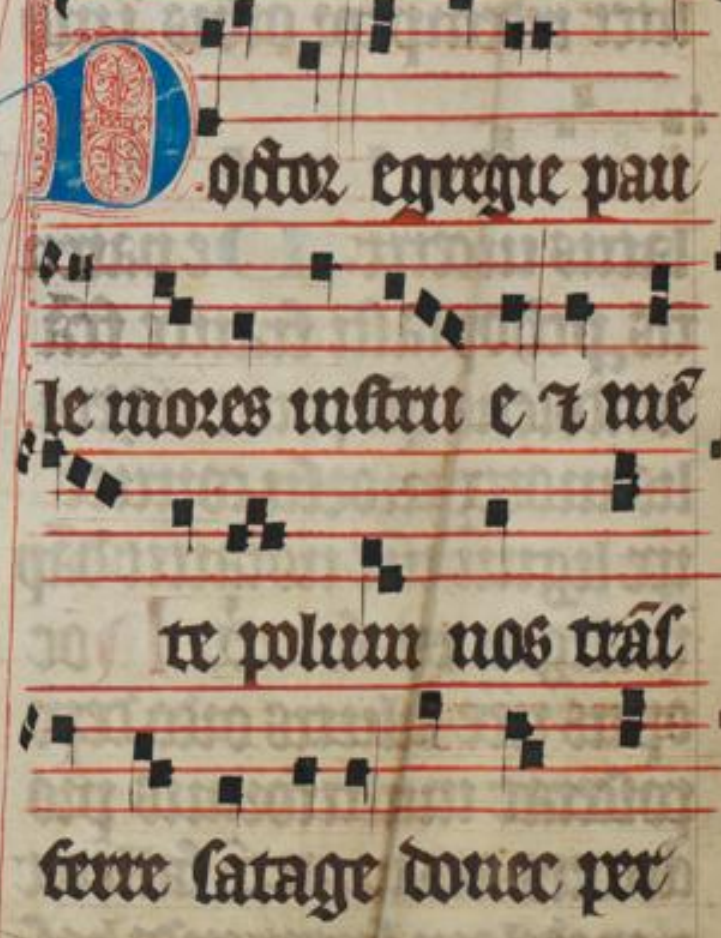 Doctor egregie pau
le mores instru e ⁊ mē
te polum nos trās
ferre satage donec per